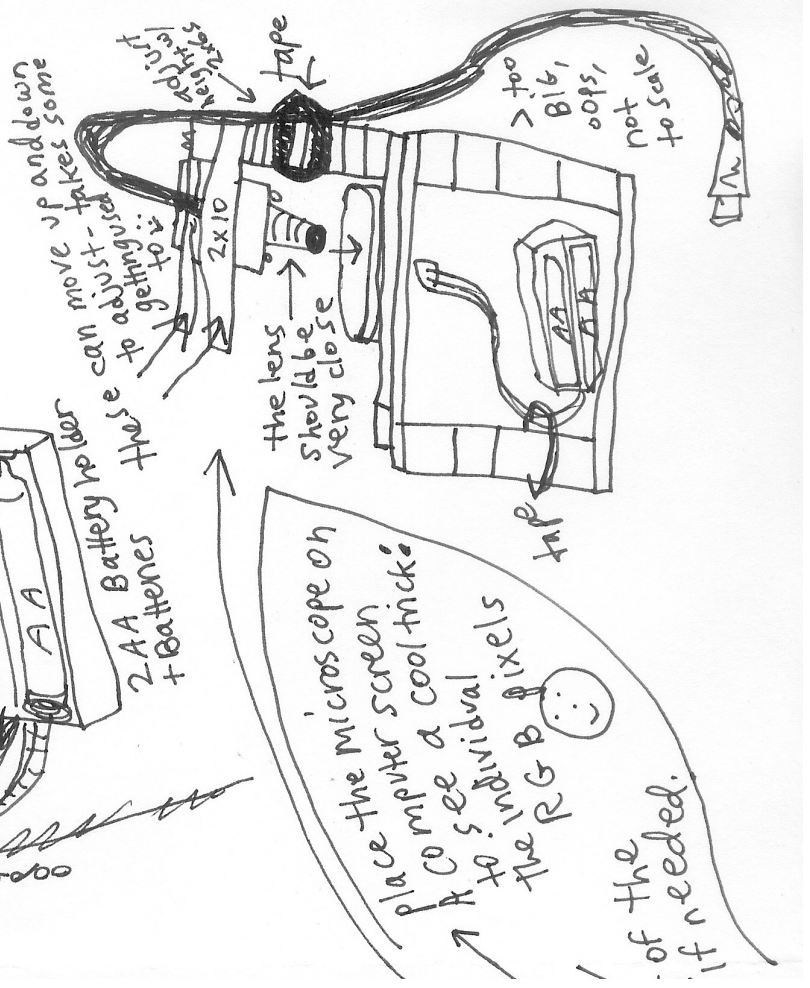 AA
2AA Battery holder
+ Batteries
these can move up and down
to adjust - takes some
getting used
to
adjust
height w/
2x6s
tape
2x10
the lens
should be
very close
> too
BIG,
oops,
not
to scale
AA
AA
tape
Place the microscope on
A computer screen
to see a cool trick:
the individual
RGB pixels
of the
if needed.